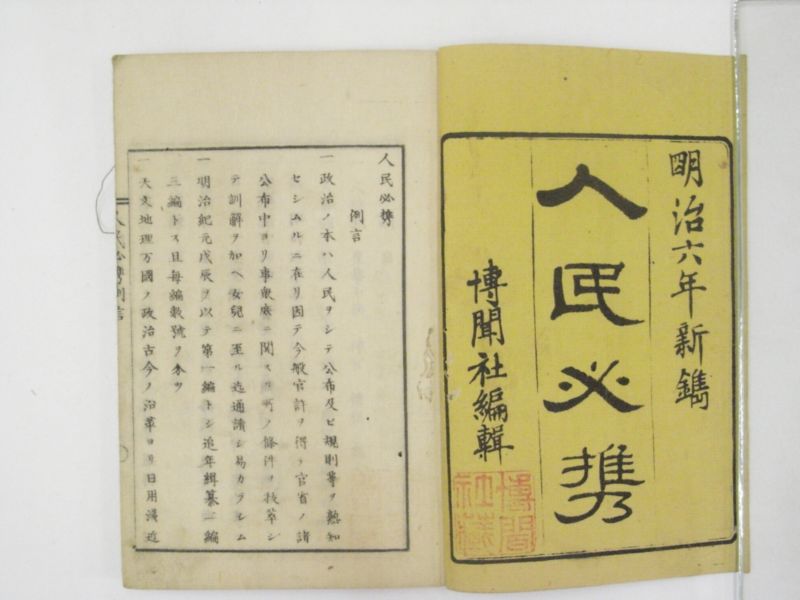 明治六年新鐫
人民必携
博聞社編輯
博聞社蔵
人民必携
例言
一政治ノ本ハ人民ヲシテ公布及ヒ規則等ヲ熟知
セシムルニ在リ因テ今般官許ヲ得テ官省ノ諸
公布中ヨリ事衆庶ニ関スル所ノ條件ヲ抜萃シ
テ訓解ヲ加ヘ女兒ニ至ル迄通讀シ易カラシム
一明治紀元戊辰ヲ以テ第一編トシ追年緝纂二編
三編トス且毎編數號ヲ分ツ
一天文地理万國ノ政治古今ノ沿革ヨリ日用浅近
人民必携例言